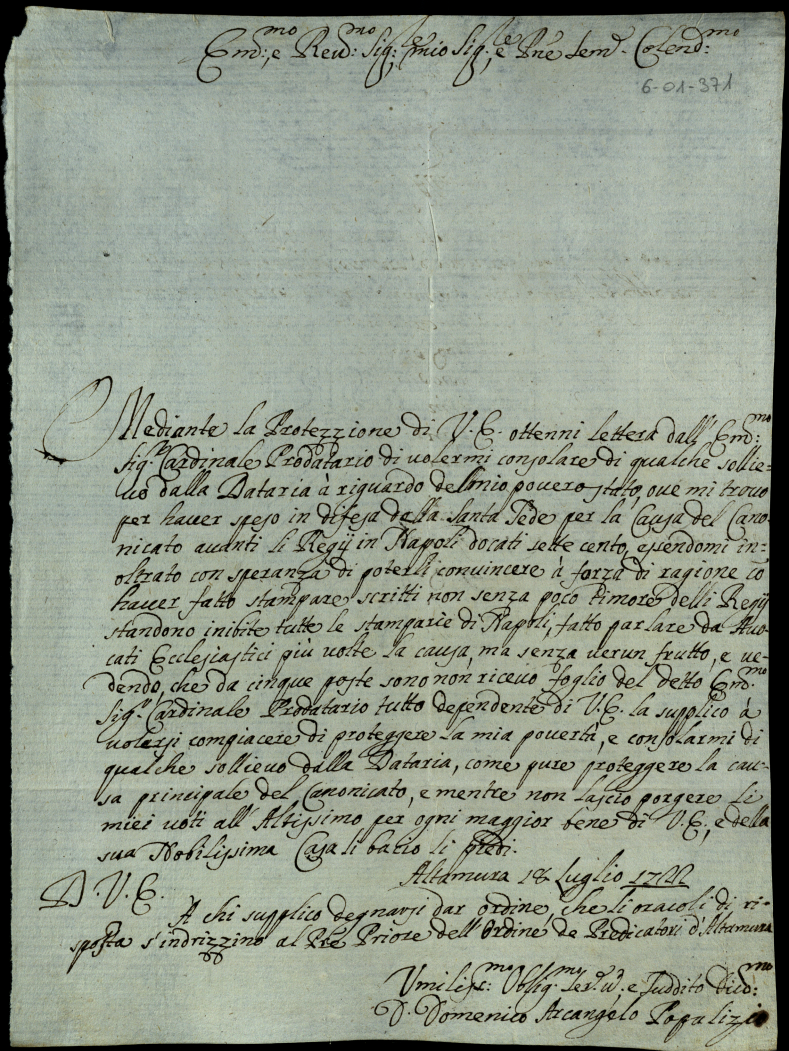 Em:mo, e Reud:mo Sig:re, mio Sig:re, e Pñe Sem.e Colend:mo
6-01-371
Mediante la Protezzione di V. E. ottenni lettera dall' Em:mo
Sig.r Cardinale Prodatario di volermi consolare di qualche sollie=
vo dalla Dataria à riguardo del mio povero stato, ove mi trovo
per haver speso in difesa della Santa Sede per la Causa del Cano
nicato avanti li Regij in Napoli docati sette cento, essendomi in=
oltrato con speranza di poterli convincere à forza di ragione co
haver fatto stampare scritti non senza poco timore delli Regij
standono inibite tutte le stamparie di Napoli, fatto parlare da Avo=
cati Ecclesiastici più volte la causa, ma senza verun frutto, e ve=
dendo, che da cinque poste sono non ricevo foglio del detto Em:mo
Sig.r Cardinale Prodatario tutto dependente di V. E. la supplico à
volersi compiacere di proteggere la mia povertà, e consolarmi di
qualche sollievo dalla Dataria, come pure proteggere la cau=
sa principale del Canonicato, e mentre non lascio porgere li
miei voti all' Altissimo per ogni maggior bene di V. E., e della
sua Nobilissima Casa li bacio li piedi.
Altamura 18 Luglio 1722
D. V. E.
A chi supplico degnarsi dar ordine, che li oracoli di ri=
sposta s'indrizzino al Prê Priore dell'Ordine de Predicatori d'Altamura
Umiliss:mo Oblig:mo Ser.e, e Suddito Dico:mo
D. Domenico Arcangelo Popolizio